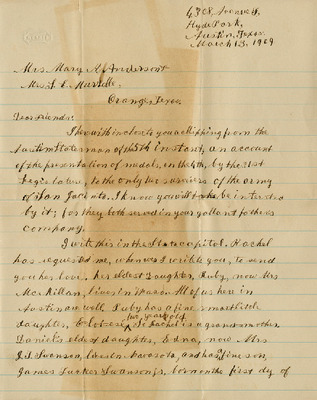 4308, Avenue G,
Hyde Park,
Austin, Texas.
March 13, 1909
Mrs. Mary A. Anderson &
Mrs. J. D. Martelle
Orange, Texas.
Dear Friends:
I herewith inclose to you a clipping from the
Austin Statesman of the 5th instant, an account
of the presentation of medals, on the 4th, by the 31st
legislature, to the only two survivors of the army
of San Jacinto. I know you will be interested
by it; for they both served in your gallant father's
company.
I write this in the State capitol. Rachel
has requested me, when I write you, to send
you her love. her eldest daughter, Ruby, now Mrs
McKillan, lives in Mason. All of us here in
Austin are well. Ruby has a fine, smart little
daughter, two years old. So Rachel is a grandmother
Daniel's eldest daughter, Edna, now Mrs
Swanson, lives in Navasota, and has a fine son,
James Tucker Swanson jr., born on the first day of